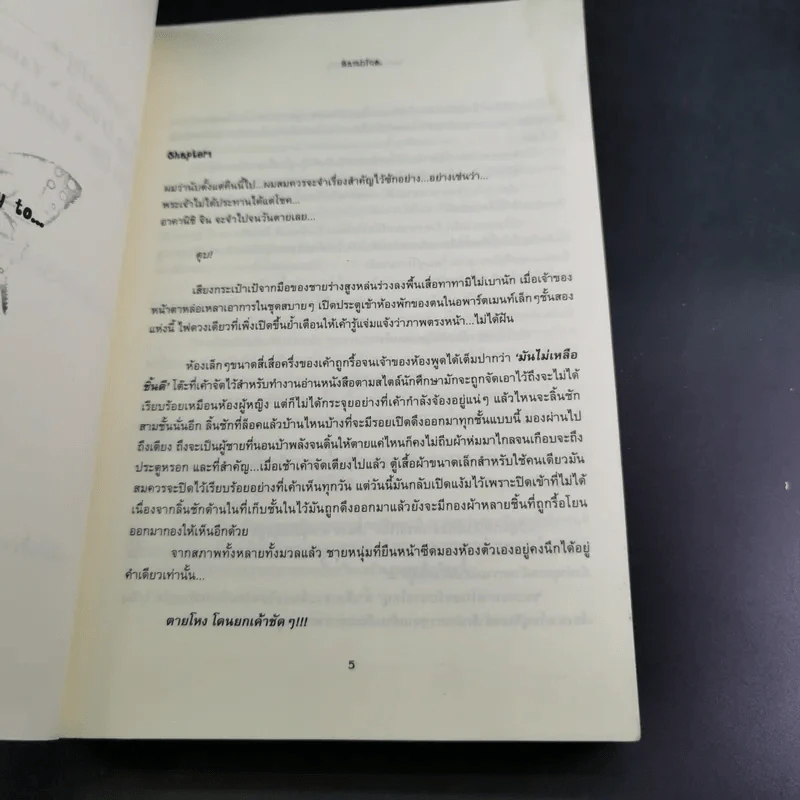 y to...
Chapter1
ผมว่านับตั้งแต่คืนนี้ไป...ผมสมควรจะจำเรื่องสำคัญไว้ซักอย่าง...อย่างเช่นว่า...
พระเจ้าไม่ได้ประทานได้แต่โชค...
อาคานิชิ จิน จะจำไปจนวันตายเลย...
ตุบ!
เสียงกระเป๋าเป้จากมือของชายร่างสูงหล่นร่วงลงพื้นเสื่อทาทามิไม่เบานัก เมื่อเจ้าของ
หน้าตาหล่อเหลาเอาการในชุดสบายๆ เปิดประตูเข้าห้องพักของตนในอพาร์ตเมนท์เล็กๆชั้นสอง
แห่งนี้ ไฟดวงเดียวที่เพิ่งเปิดขึ้นย้ำเตือนให้เค้ารู้แจ่มแจ้งว่าภาพตรงหน้า...ไม่ได้ฝัน
ห้องเล็กๆขนาดสี่เสื่อครึ่งของเค้าถูกรื้อจนเจ้าของห้องพูดได้เต็มปากว่า 'มันไม่เหลือ
ชิ้นดี' โต๊ะที่เค้าจัดไว้สำหรับทำงานอ่านหนังสือตามสไตล์นักศึกษามักจะถูกจัดเอาไว้ถึงจะไม่ได้
เรียบร้อยเหมือนห้องผู้หญิง แต่ก็ไม่ได้กระจุยอย่างที่เค้ากำลังจ้องอยู่แน่ๆ แล้วไหนจะลิ้นชัก
สามชั้นนั่นอีก ลิ้นชักที่ล็อคแล้วบ้านไหนบ้างที่จะมีรอยเปิดดึงออกมาทุกชั้นแบบนี้ มองผ่านไป
ถึงเตียง ถึงจะเป็นผู้ชายที่นอนบ้าพลังจนดิ้นให้ตายแค่ไหนก็คงไม่ถีบผ้าห่มมาไกลจนเกือบจะถึง
ประตูหรอก และที่สำคัญ...เมื่อเช้าเค้าจัดเตียงไปแล้ว ตู้เสื้อผ้าขนาดเล็กสำหรับใช้คนเดียวมัน
สมควรจะปิดไว้เรียบร้อยอย่างที่เค้าเห็นทุกวัน แต่วันนี้มันกลับเปิดแง้มไว้เพราะปิดเข้าที่ไม่ได้
เนื่องจากลิ้นชักด้านในที่เก็บชั้นในไว้มันถูกดึงออกมาแล้วยังจะมีกองผ้าหลายชิ้นที่ถูกรื้อโยน
ออกมากองให้เห็นอีกด้วย
จากสภาพทั้งหลายทั้งมวลแล้ว ชายหนุ่มที่ยืนหน้าซีดมองห้องตัวเองอยู่คงนึกได้อยู่
คำเดียวเท่านั้น...
ตายโหง โดนยกเค้าชัดๆ!!!
5